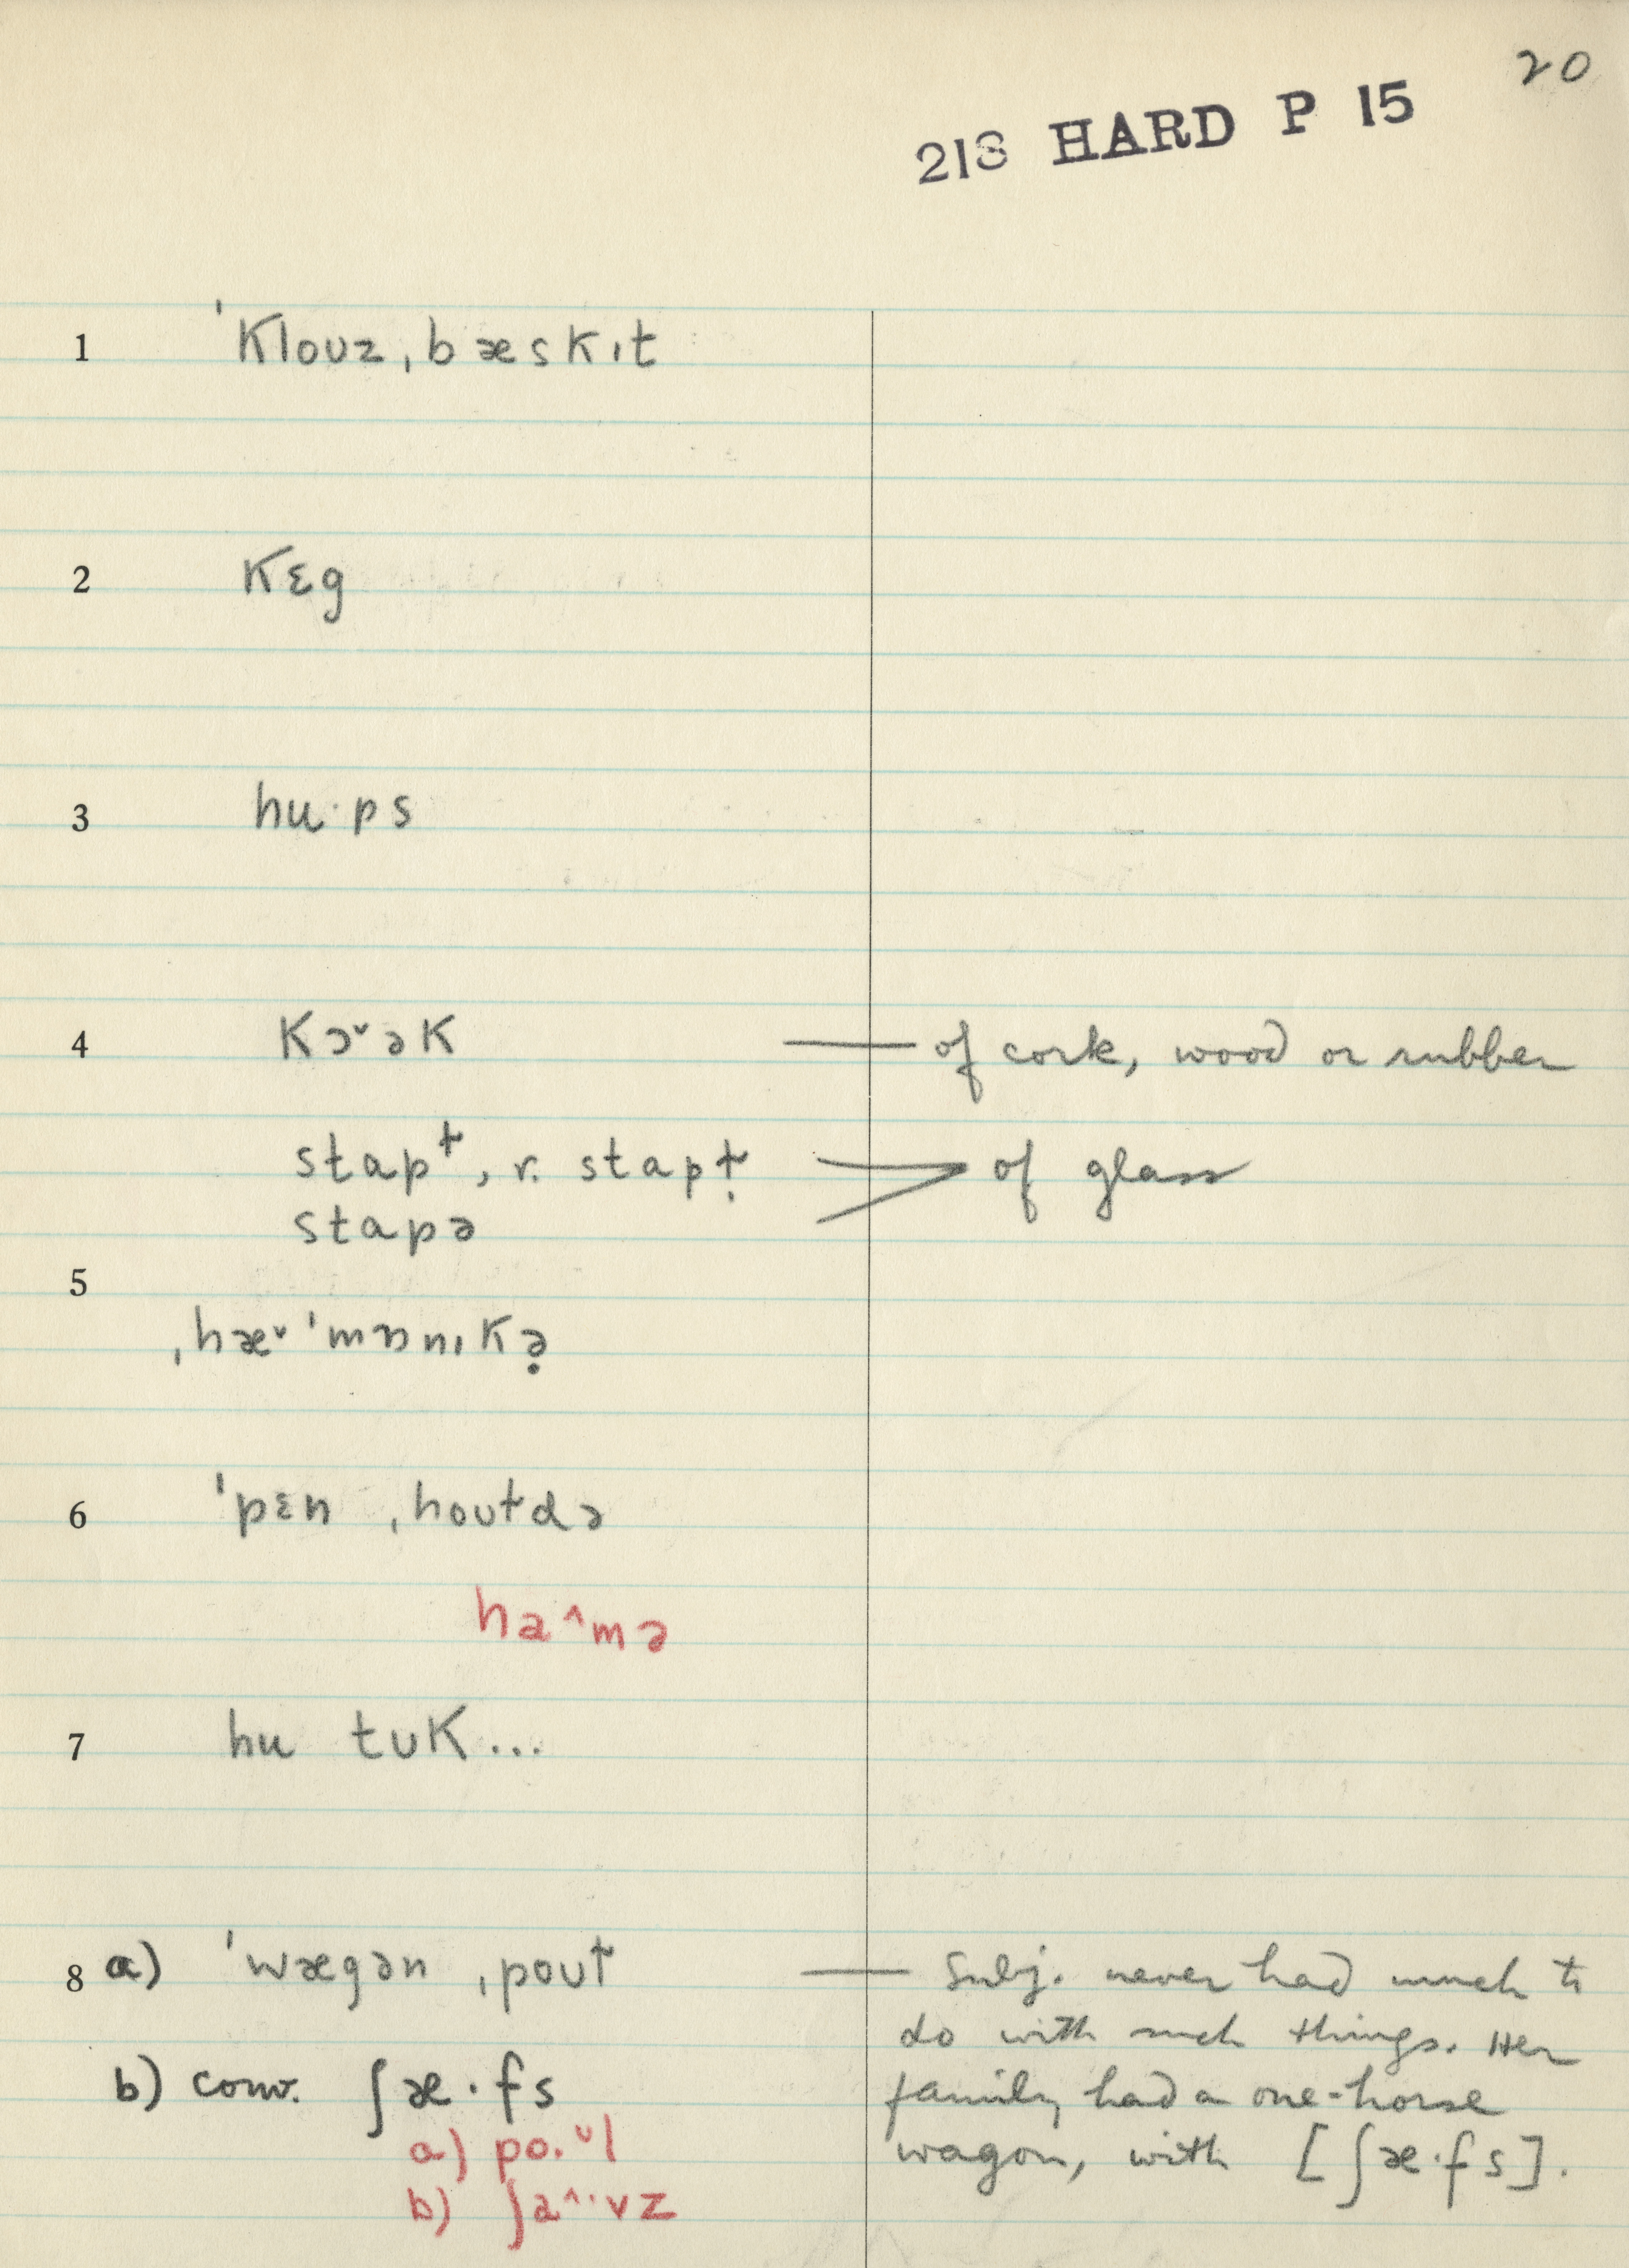 20
218 HARD P 15
1 ˈklouz ˌbæskɪt
2 kɛg
3 hu·ps
4 kɔ˅ək — of cork, wood or rubber
stapɫ, r. stapɫ̣ > of glass
stapə
5
ˌhæ˅ˈmɒnɪkə̣
6 ˈpɛn ˌhoʊɫdə
ha^mə
7 hu tʊk...
8 a) ˈwægən ˌpoʊɫ — Subj. never had much to
do with such things. Her
b) conv. ʃæ·fs family had a one-horse
a) po·˅l wagon, with [ʃæ·fs].
b) ʃa^·vz